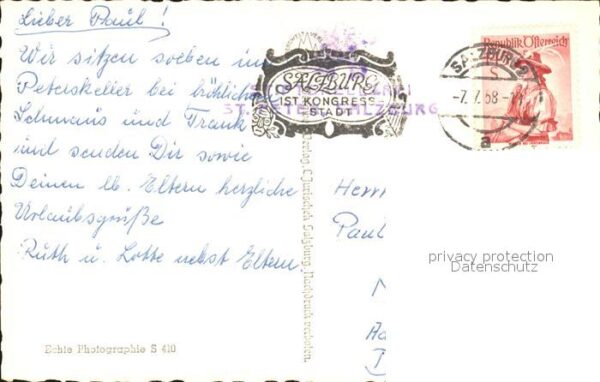 Lieber Paul!
Wir sitzen soeben im
Peterskeller bei fröhlichem
Schmaus und Trank
und senden Dir sowie
Deinen lb. Eltern herzliche
Urlaubsgrüße
Ruth u. Lotte nebst Eltern.
Echte Photographie S 410
SALZBURG
IST KONGRESS
STADT
ST. PETER SALZBURG
Verlag C. Jurischek, Salzburg, Nachdruck verboten.
SALZBURG 2
-7. 7. 58
a
Republik Österreich
Herrn
Paul
privacy protection
Datenschutz